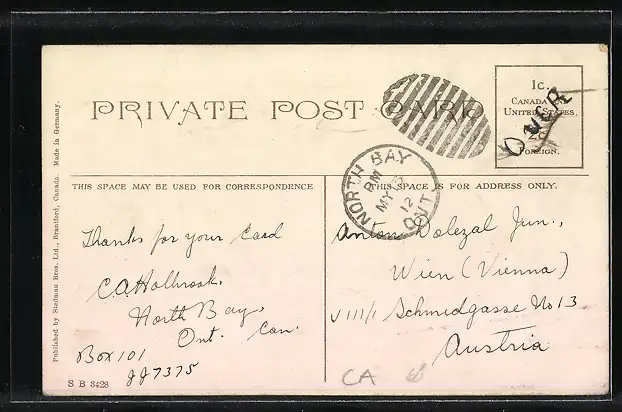 PRIVATE POST CARD
1c.
CANADA AND
UNITED STATES.
2c.
FOREIGN.
OVER
NORTH BAY
PM
MY
12
ONT.
THIS SPACE MAY BE USED FOR CORRESPONDENCE
THIS SPACE IS FOR ADDRESS ONLY.
Published by Stedman Bros. Ltd., Brantford, Canada. Made in Germany.
Thanks for your Card
C.A. Holbrook.
North Bay,
Ont. Can.
Box 101
JJ7375
S B 8428
Anton Dolezal Jun.,
Wien (Vienna)
VIII/1 Schmidgasse No 13
Austria
CA